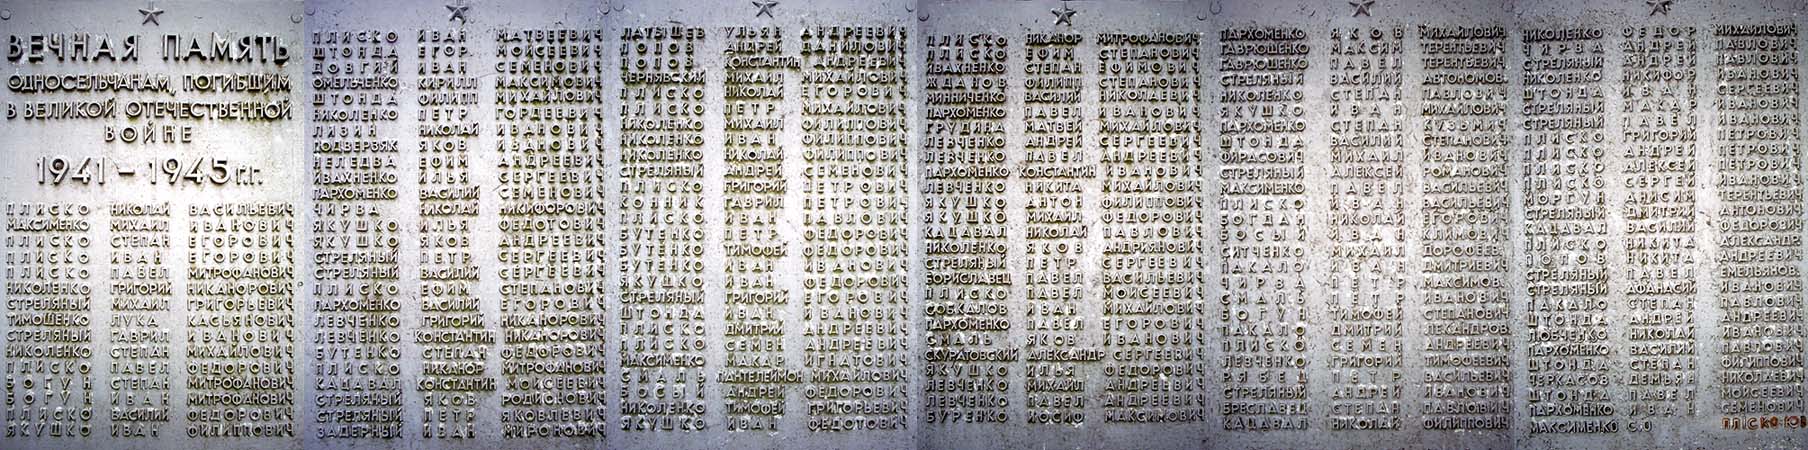 ВЕЧНАЯ ПАМЯТЬ
ОДНОСЕЛЬЧАНАМ, ПОГИБШИМ
В ВЕЛИКОЙ ОТЕЧЕСТВЕННОЙ
ВОЙНЕ
1941 – 1945 г.г.
ПЛИСКО НИКОЛАЙ ВАСИЛЬЕВИЧ
МАКСИМЕНКО МИХАИЛ ИВАНОВИЧ
ПЛИСКО СТЕПАН ЕГОРОВИЧ
ПЛИСКО ИВАН ЕГОРОВИЧ
ПЛИСКО ПАВЕЛ МИТРОФАНОВИЧ
НИКОЛЕНКО ГРИГОРИЙ НИКАНОРОВИЧ
СТРЕЛЯНЫЙ МИХАИЛ ГРИГОРЬЕВИЧ
ТИМОШЕНКО ЛУКА КАСЬЯНОВИЧ
СТРЕЛЯНЫЙ ГАВРИЛ ИВАНОВИЧ
НИКОЛЕНКО СТЕПАН МИХАЙЛОВИЧ
ПЛИСКО ПАВЕЛ ФЕДОРОВИЧ
БОГУН СТЕПАН МИТРОФАНОВИЧ
БОГУН ИВАН МИТРОФАНОВИЧ
ПЛИСКО ВАСИЛИЙ ФЕДОРОВИЧ
ЯКУШКО ИВАН ФИЛИППОВИЧ
ПЛИСКО ИВАН МАТВЕЕВИЧ
ШТОНДА ЕГОР МОИСЕЕВИЧ
ДОВГИЙ ИВАН СЕМЕНОВИЧ
ОМЕЛЬЧЕНКО КИРИЛЛ МАКСИМОВИЧ
ШТОНДА ФИЛИПП МИХАЙЛОВИЧ
НИКОЛЕНКО ПЕТР ГОРДЕЕВИЧ
ЛИЗИН НИКОЛАЙ ИВАНОВИЧ
ПОДВЕРЗЯК ЯКОВ ИВАНОВИЧ
ПЕЛЕДВА ЕФИМ АНДРЕЕВИЧ
ИВАХНЕНКО ИЛЬЯ СЕРГЕЕВИЧ
ПАРХОМЕНКО ВАСИЛИЙ СЕМЕНОВИЧ
ЧИРВА НИКОЛАЙ НИКИФОРОВИЧ
ЯКУШКО ИЛЬЯ ФЕДОТОВИЧ
ЯКУШКО ЯКОВ АНДРЕЕВИЧ
СТРЕЛЯНЫЙ ПЕТР СЕРГЕЕВИЧ
СТРЕЛЯНЫЙ ВАСИЛИЙ СЕРГЕЕВИЧ
ПЛИСКО ЕФИМ СТЕПАНОВИЧ
ПАРХОМЕНКО ВАСИЛИЙ ЕГОРОВИЧ
ЛЕВЧЕНКО ГРИГОРИЙ НИКАНОРОВИЧ
ЛЕВЧЕНКО КОНСТАНТИН НИКАНОРОВИЧ
БУТЕНКО СТЕПАН ФЕДОРОВИЧ
ПЛИСКО НИКАНОР МИТРОФАНОВИЧ
КАЦАВАЛ КОНСТАНТИН МОИСЕЕВИЧ
СТРЕЛЯНЫЙ ЯКОВ РОДИОНОВИЧ
СТРЕЛЯНЫЙ ПЕТР ЯКОВЛЕВИЧ
ЗАДЕРНЫЙ ИВАН МИРОНОВИЧ
ЛАТЫШЕВ УЛЬЯН АНДРЕЕВИЧ
ПОПОВ АНДРЕЙ ДАНИЛОВИЧ
ПОПОВ КОНСТАНТИН АНДРЕЕВИЧ
ЧЕРНЯВСКИЙ МИХАИЛ МИХАЙЛОВИЧ
ПЛИСКО НИКОЛАЙ ЕГОРОВИЧ
ПЛИСКО ПЕТР МИХАЙЛОВИЧ
НИКОЛЕНКО МИХАИЛ ФИЛИППОВИЧ
НИКОЛЕНКО ИВАН ФИЛИППОВИЧ
НИКОЛЕНКО НИКОЛАЙ ФИЛИППОВИЧ
СТРЕЛЯНЫЙ АНДРЕЙ СЕМЕНОВИЧ
ПЛИСКО ГРИГОРИЙ ПЕТРОВИЧ
ГАВРИЛ ИВАНОВИЧ
ПЛИСКО ИВАН ПАВЛОВИЧ
БУТЕНКО ПЕТР ФЕДОРОВИЧ
БУТЕНКО ТИМОФЕЙ ФЕДОРОВИЧ
БУТЕНКО ИВАН ИВАНОВИЧ
ЯКУШКО ИВАН ФЕДОРОВИЧ
СТРЕЛЯНЫЙ ГРИГОРИЙ ЕГОРОВИЧ
ШТОНДА ИВАН ЕГОРОВИЧ
ПЛИСКО ДМИТРИЙ АНДРЕЕВИЧ
ПЛИСКО СЕМЕН АНДРЕЕВИЧ
МАКСИМЕНКО МАКАР ИГНАТОВИЧ
СМАЛЬ ПАНТЕЛЕЙМОН МИХАЙЛОВИЧ
БОСЫЙ АНДРЕЙ ФЕДОРОВИЧ
НИКОЛЕНКО ТИМОФЕЙ ГРИГОРЬЕВИЧ
ЯКУШКО ИВАН ФЕДОТОВИЧ
ПЛИСКО НИКАНОР МИТРОФАНОВИЧ
ПЛИСКО ЕФИМ СТЕПАНОВИЧ
ИВАХНЕНКО СТЕПАН ЕФИМОВИЧ
ЖДАНОВ ФИЛИПП СТЕПАНОВИЧ
МИННИЧЕНКО ВАСИЛИЙ НИКОЛАЕВИЧ
ПАРХОМЕНКО ИВАН ИВАНОВИЧ
ГРУДИНА МАТВЕЙ МИХАЙЛОВИЧ
ЛЕВЧЕНКО АНДРЕЙ СЕРГЕЕВИЧ
ЛЕВЧЕНКО ПАВЕЛ АНДРЕЕВИЧ
ПАРХОМЕНКО КОНСТАНТИН ИВАНОВИЧ
ЛЕВЧЕНКО НИКИТА МИХАЙЛОВИЧ
ЯКУШКО АНТОН ФИЛИППОВИЧ
ЯКУШКО МИХАИЛ ФЕДОРОВИЧ
КАЦАВАЛ НИКОЛАЙ ПАВЛОВИЧ
НИКОЛЕНКО ЯКОВ АНДРИЯНОВИЧ
СТРЕЛЯНЫЙ ПЕТР СЕРГЕЕВИЧ
БОРИСЛАВЕЦ ПАВЕЛ ВАСИЛЬЕВИЧ
ПЛИСКО ПАВЕЛ МОИСЕЕВИЧ
СОБКАЛОВ ИВАН ФЕДОРОВИЧ
ПАРХОМЕНКО ПАВЕЛ ЕГОРОВИЧ
СМАЛЬ ЯКОВ ИВАНОВИЧ
СКУРАТОВСКИЙ АЛЕКСАНДР СЕРГЕЕВИЧ
ЯКУШКО ИЛЬЯ ФЕДОРОВИЧ
ЛЕВЧЕНКО МИХАИЛ АНДРЕЕВИЧ
ЛЕВЧЕНКО ПАВЕЛ АНДРЕЕВИЧ
БУРЕНКО ИОСИФ МАКСИМОВИЧ
ПАРХОМЕНКО ЯКОВ МИХАЙЛОВИЧ
ГАВРЮШЕНКО МАКСИМ ТЕРЕНТЬЕВИЧ
ГАВРЮШЕНКО ПАВЕЛ ТЕРЕНТЬЕВИЧ
СТРЕЛЯНЫЙ ВАСИЛИЙ АВТОНОМОВ
НИКОЛЕНКО СТЕПАН ПАВЛОВИЧ
ЯКУШКО ИВАН МИХАЙЛОВИЧ
ПАРХОМЕНКО СТЕПАН КУЗЬМИЧ
ШТОНДА ВАСИЛИЙ СТЕПАНОВИЧ
ФИРАСОВИЧ МИХАИЛ ИВАНОВИЧ
СТРЕЛЯНЫЙ АЛЕКСЕЙ РОМАНОВИЧ
МАКСИМЕНКО ПАВЕЛ ВАСИЛЬЕВИЧ
ПЛИСКО ИВАН ВАСИЛЬЕВИЧ
БОГДАН НИКОЛАЙ ЕГОРОВИЧ
БОСЫЙ ИВАН КЛИМОВИЧ
СИТЧЕНКО МИХАИЛ ДОРОФЕЕВИЧ
ПАКАЛО ИВАН ДМИТРИЕВИЧ
ЧИРВА ПЕТР МАКСИМОВИЧ
СМАЛЬ ПЕТР ИВАНОВИЧ
БОГУН ТИМОФЕЙ СТЕПАНОВИЧ
ПАКАЛО ДМИТРИЙ
ПЛИСКО СЕМЕН АНДРЕЕВИЧ
ЛЕВЧЕНКО ГРИГОРИЙ ТИМОФЕЕВИЧ
РЯБЕЦ ПЕТР ВАСИЛЬЕВИЧ
СТРЕЛЯНЫЙ АНДРЕЙ ИВАНОВИЧ
БРЕСЛАВЕЦ СТЕПАН ПАВЛОВИЧ
КАЦАВАЛ НИКОЛАЙ ФИЛИППОВИЧ
НИКОЛЕНКО ФЕДОР МИХАЙЛОВИЧ
ЧИРВА АНДРЕЙ ПАВЛОВИЧ
СТРЕЛЯНЫЙ АНДРЕЙ ПАВЛОВИЧ
НИКОЛЕНКО НИКИФОР ИВАНОВИЧ
ШТОНДА ИВАН СЕРГЕЕВИЧ
СТРЕЛЯНЫЙ МАКАР ИВАНОВИЧ
СТРЕЛЯНЫЙ ПАВЕЛ ИВАНОВИЧ
ПЛИСКО ГРИГОРИЙ ПЕТРОВИЧ
ПЛИСКО АНДРЕЙ ПЕТРОВИЧ
ПЛИСКО АЛЕКСЕЙ ПЕТРОВИЧ
ПЛИСКО СЕРГЕЙ ИВАНОВИЧ
МОРГУН АНИСИМ ТЕРЕНТЬЕВИЧ
СТРЕЛЯНЫЙ ДМИТРИЙ АНТОНОВИЧ
КАЦАВАЛ ВАСИЛИЙ ФЕДОРОВИЧ
ПЛИСКО НИКИТА АЛЕКСАНДР
ПОПОВ НИКИТА АНДРЕЕВИЧ
СТРЕЛЯНЫЙ ПАВЕЛ ЕМЕЛЬЯНОВ
СТРЕЛЯНЫЙ АФАНАСИЙ ИВАНОВИЧ
ПАКАЛО СТЕПАН ПАВЛОВИЧ
ШТОНДА АНДРЕЙ АНДРЕЕВИЧ
ЛЮБЧЕНКО НИКОЛАЙ ИВАНОВИЧ
ПАРХОМЕНКО ВАСИЛИЙ ПАВЛОВИЧ
ШТОНДА СТЕПАН ФИЛИППОВИЧ
ЧЕРКАСОВ ДЕМЬЯН НИКОЛАЕВИЧ
ШТОНДА ПАВЕЛ МОИСЕЕВИЧ
ПАРХОМЕНКО ИВАН СЕМЕНОВИЧ
МАКСИМЕНКО С.О ПЛІСКО